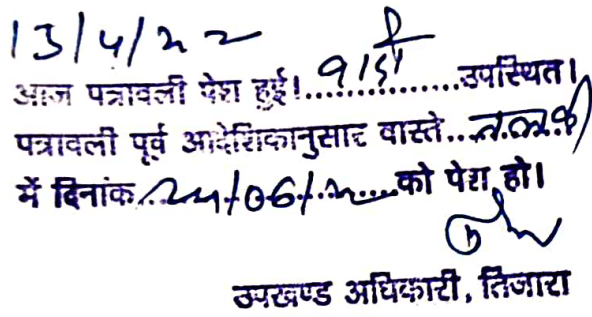 13/4/22
आज पत्रावली पेश हुई।...वादी...उपस्थित।
पत्रावली पूर्व आदेशिकानुसार वास्ते..तलबी
में दिनांक 24/06/22 को पेश हो।
उपखण्ड अधिकारी, तिजारा